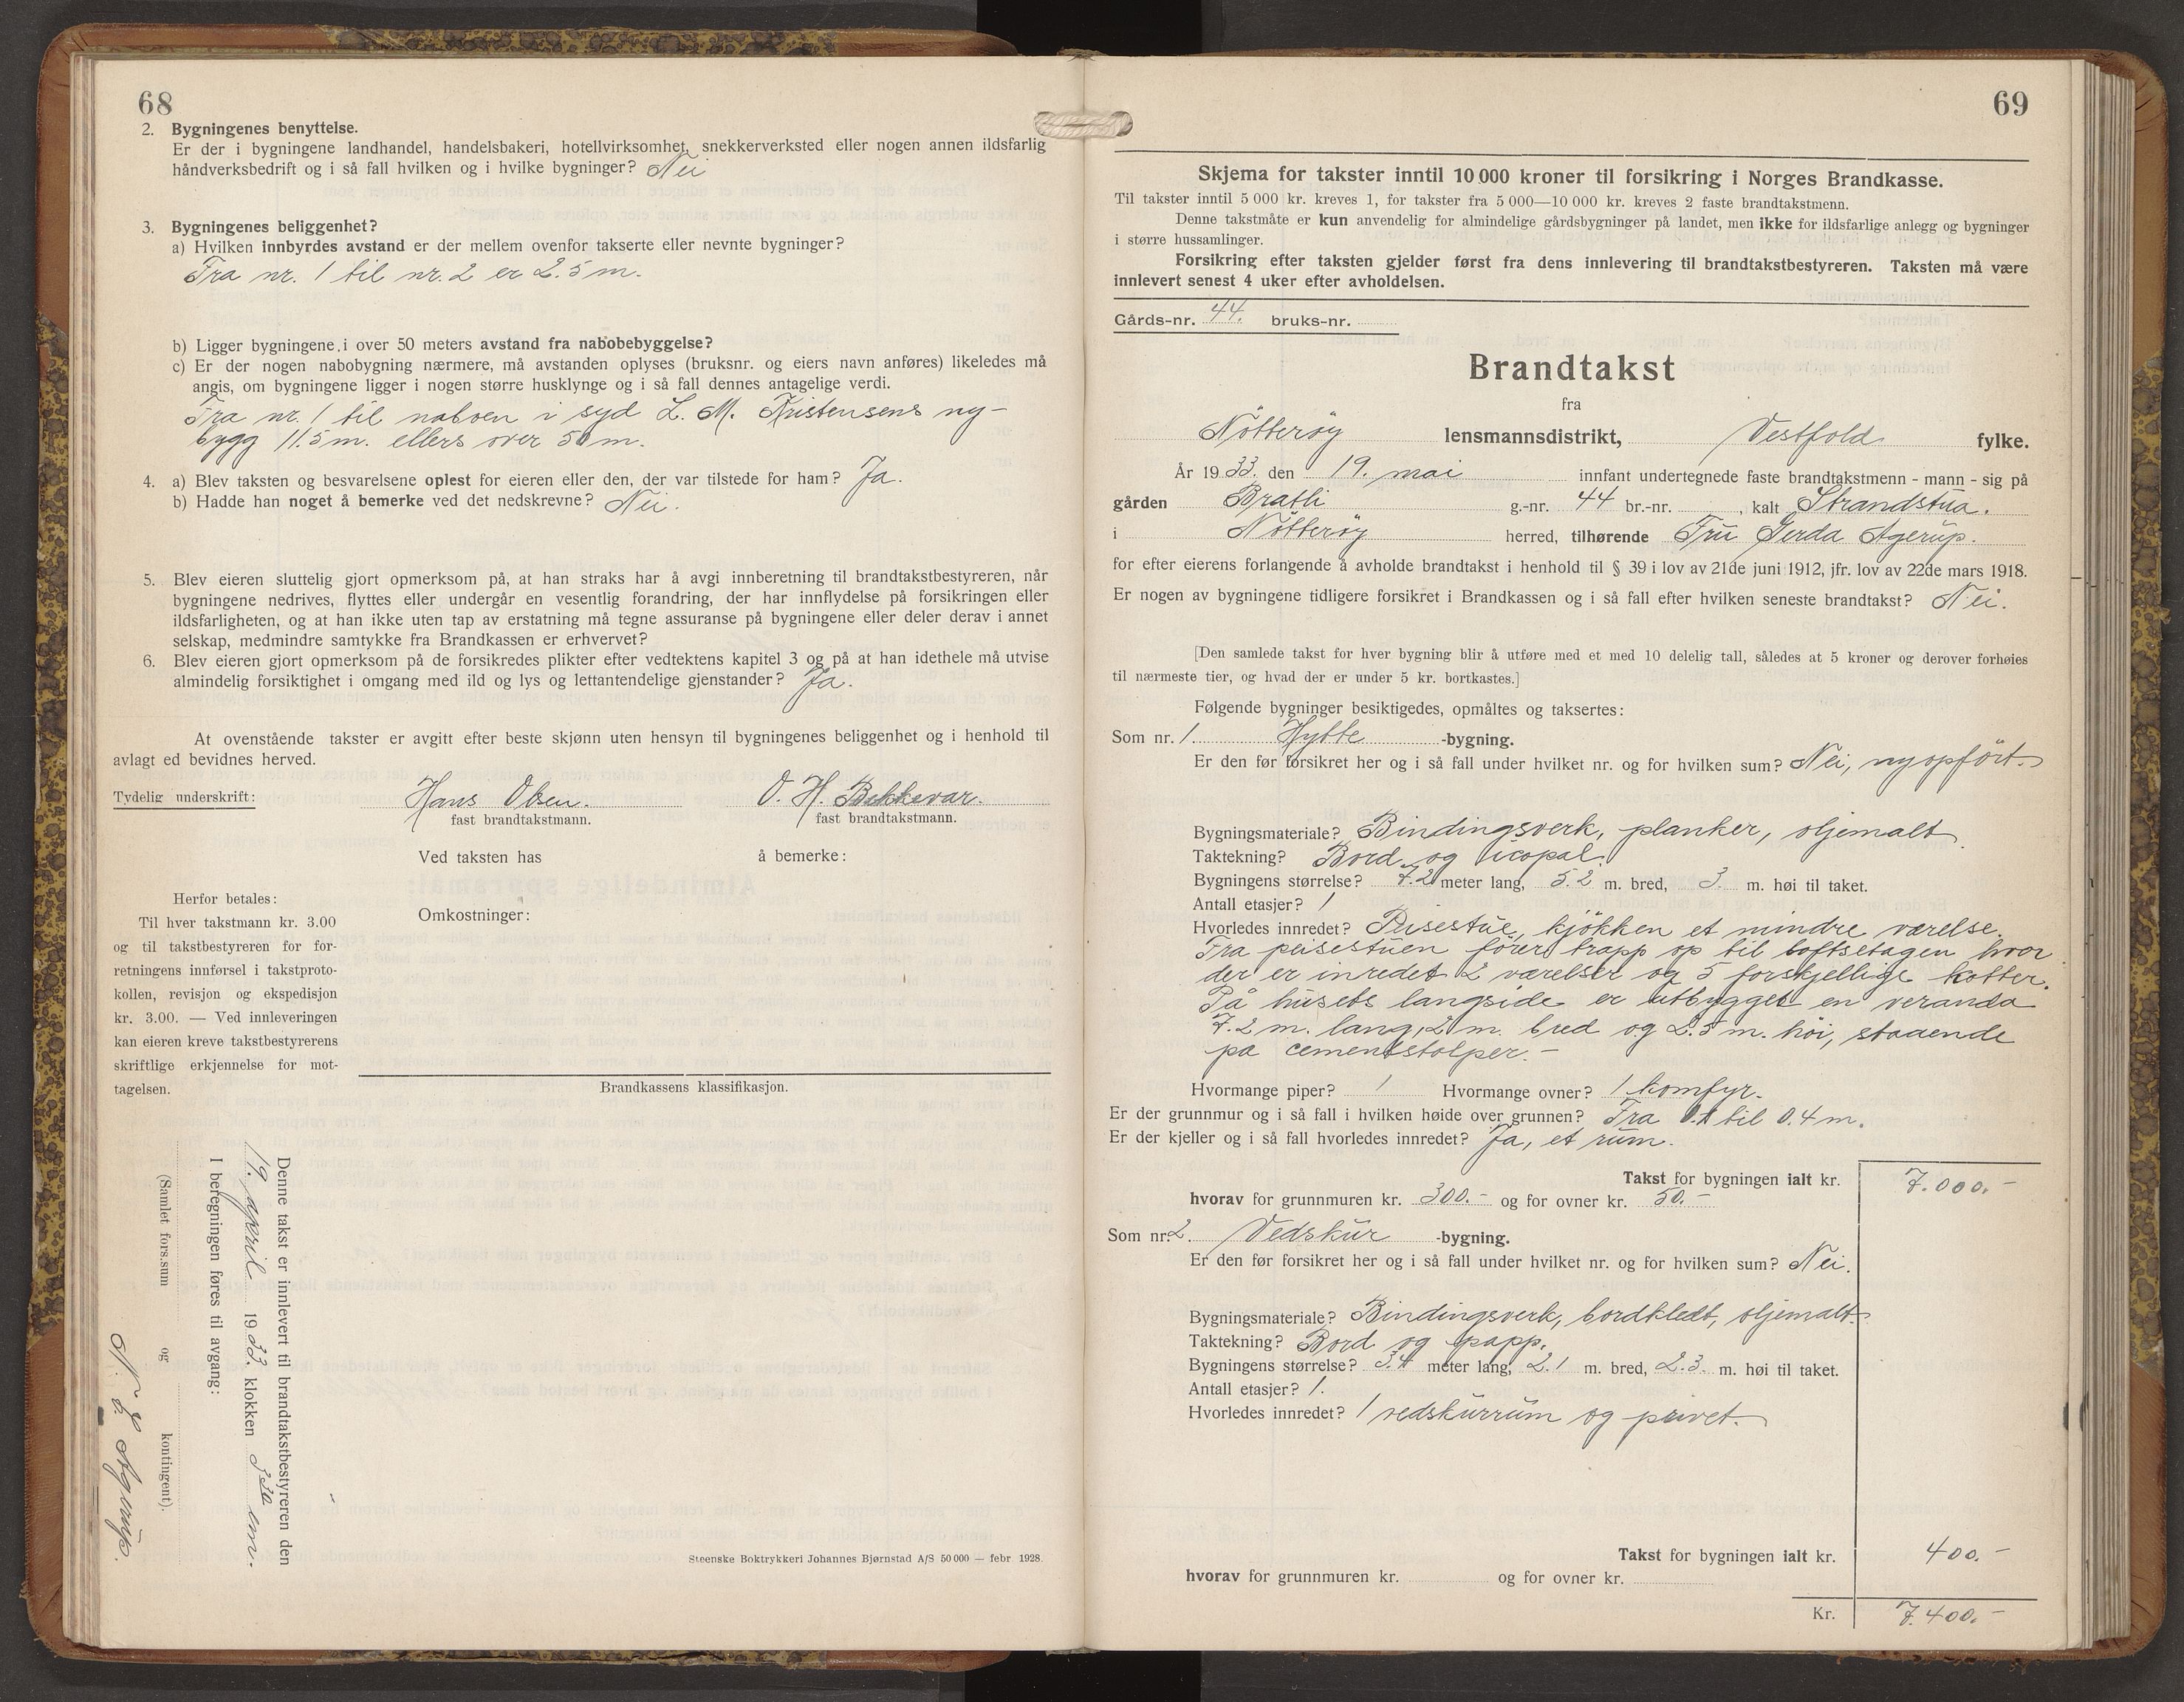 68
2. Bygningenes benyttelse.
Er der i bygningene landhandel, handelsbakeri, hotellvirksomhet, snekkerverksted eller nogen annen ildsfarlig
håndverksbedrift og i så fall hvilken og i hvilke bygninger? Nei
3. Bygningenes beliggenhet?
a) Hvilken innbyrdes avstand er der mellem ovenfor takserte eller nevnte bygninger?
Fra nr. 1 til nr. 2 er 2.5 m.
b) Ligger bygningene i over 50 meters avstand fra nabobebyggelse?
c) Er der nogen nabobygning nærmere, må avstanden oplyses (bruksnr. og eiers navn anføres) likeledes må
angis, om bygningene ligger i nogen større husklynge og i så fall dennes antagelige verdi.
Fra nr. 1 til naboen i syd L. M. Kristensens ny-
bygg 11.5 m. ellers over 50 m.
4. a) Blev taksten og besvarelsene oplest for eieren eller den, der var tilstede for ham? Ja.
b) Hadde han noget å bemerke ved det nedskrevne? Nei.
5. Blev eieren sluttelig gjort opmerksom på, at han straks har å avgi innberetning til brandtakstbestyreren, når
bygningene nedrives, flyttes eller undergår en vesentlig forandring, der har innflydelse på forsikringen eller
ildsfarligheten, og at han ikke uten tap av erstatning må tegne assuranse på bygningene eller deler derav i annet
selskap, medmindre samtykke fra Brandkassen er erhvervet?
6. Blev eieren gjort opmerksom på de forsikredes plikter efter vedtektens kapitel 3 og på at han idethele må utvise
almindelig forsiktighet i omgang med ild og lys og lettantendelige gjenstander? Ja.
At ovenstående takster er avgitt efter beste skjønn uten hensyn til bygningenes beliggenhet og i henhold til
avlagt ed bevidnes herved.
Tydelig underskrift: Hans Olsen. O. H. Bekkevar.
fast brandtakstmann. fast brandtakstmann.
Ved taksten has å bemerke:
Herfor betales:
Til hver takstmann kr. 3.00
og til takstbestyreren for for-
retningens innførsel i takstproto-
kollen, revisjon og ekspedisjon
kr. 3.00. — Ved innleveringen
kan eieren kreve takstbestyrerens
skriftlige erkjennelse for mot-
tagelsen.
Omkostninger:
Brandkassens klassifikasjon.
Denne takst er innlevert til brandtakstbestyreren den
19. april 1933. klokken 3 30 em.
I beregningen føres til avgang:
(Samlet fors.sum og kontingent).
Agerup.
Steenske Boktrykkeri Johannes Bjørnstad A/S 50 000 — febr. 1928.
69
Skjema for takster inntil 10 000 kroner til forsikring i Norges Brandkasse.
Til takster inntil 5 000 kr. kreves 1, for takster fra 5 000—10 000 kr. kreves 2 faste brandtakstmenn.
Denne takstmåte er kun anvendelig for almindelige gårdsbygninger på landet, men ikke for ildsfarlige anlegg og bygninger
i større hussamlinger.
Forsikring efter taksten gjelder først fra dens innlevering til brandtakstbestyreren. Taksten må være
innlevert senest 4 uker efter avholdelsen.
Gårds-nr. 44. bruks-nr.
Brandtakst
fra
Nötteröy lensmannsdistrikt, Vestfold fylke.
År 1933. den 19. mai innfant undertegnede faste brandtakstmenn - mann - sig på
gården Bratli g.-nr. 44 br.-nr. , kalt Strandstua.
i Nötteröy herred, tilhørende Fru Gerda Agerup.
for efter eierens forlangende å avholde brandtakst i henhold til § 39 i lov av 21de juni 1912, jfr. lov av 22de mars 1918.
Er nogen av bygningene tidligere forsikret i Brandkassen og i så fall efter hvilken seneste brandtakst? Nei.
[Den samlede takst for hver bygning blir å utføre med et med 10 delelig tall, således at 5 kroner og derover forhøies
til nærmeste tier, og hvad der er under 5 kr. bortkastes.]
Følgende bygninger besiktigedes, opmåltes og taksertes:
Som nr. 1. Hytte -bygning.
Er den før forsikret her og i så fall under hvilket nr. og for hvilken sum? Nei, nyopfört.
Bygningsmateriale? Bindingsverk, planker, oljemalt.
Taktekning? Bord og icopal.
Bygningens størrelse? 7.2 meter lang, 5.2 m. bred, 3. m. høi til taket.
Antall etasjer? 1
Hvorledes innredet? Peisestue, kjökken et mindre værelse.
Fra peisestuen förer trapp op til loftsetagen hvor
der er inredet 2 værelser og 5 forskjellige kotter.
På husets langside er utbygget en veranda
7.2 m. lang, 2 m. bred og 2.5 m. höi, staaende
pa cementstolper.-
Hvormange piper? 1 Hvormange ovner? 1 komfyr.
Er der grunnmur og i så fall i hvilken høide over grunnen? Fra 0.1 til 0.4 m.
Er der kjeller og i så fall hvorledes innredet? Ja, et rum.
Takst for bygningen ialt kr. 7.000.-
hvorav for grunnmuren kr. 300.- og for ovner kr. 50.-
Som nr 2. Vedskur -bygning.
Er den før forsikret her og i så fall under hvilket nr. og for hvilken sum? Nei.
Bygningsmateriale? Bindingsverk, bordkledt, oljemalt.
Taktekning? Bord og papp.
Bygningens størrelse? 3.4 meter lang, 2.1 m. bred, 2.3. m. høi til taket.
Antall etasjer? 1.
Hvorledes innredet? 1 vedskurrum og privet.
Takst for bygningen ialt kr. 400.-
hvorav for grunnmuren kr. og for ovner kr.
Kr. 7.400.-